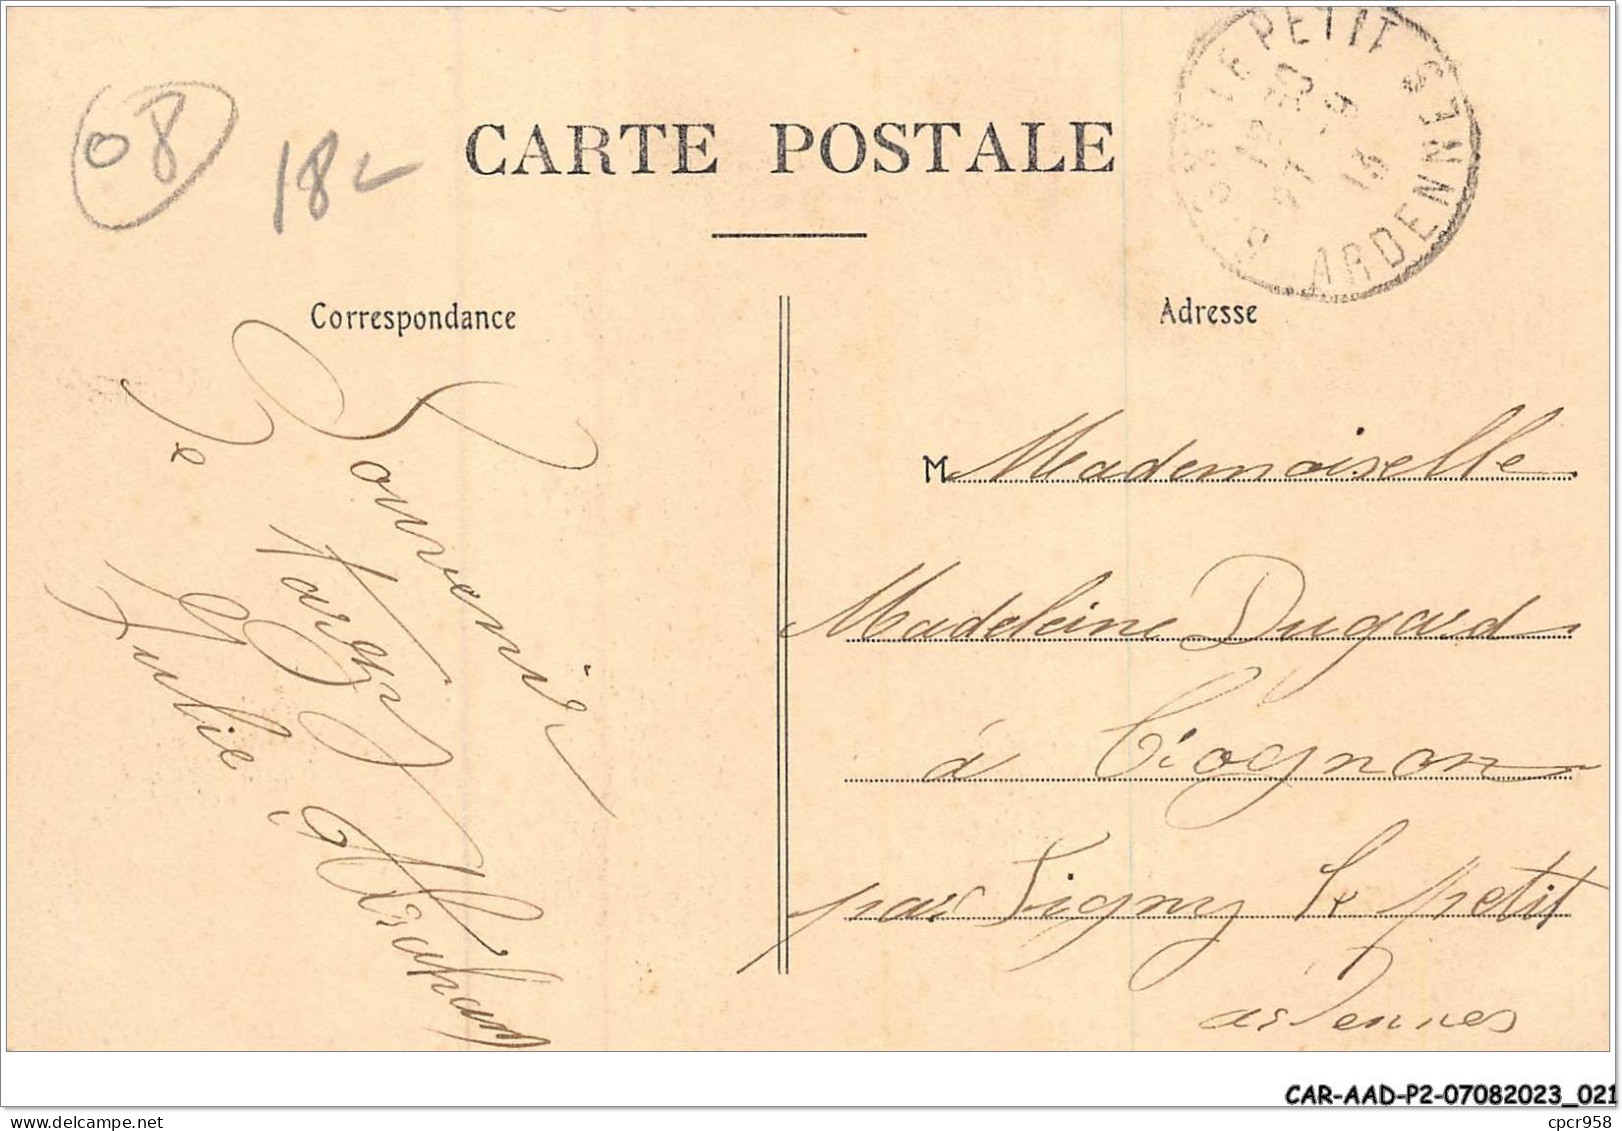 08
18
CARTE POSTALE
SIGNY LE PETIT
ARDENNES
Correspondance
Adresse
Souvenir
De
Julie Abraham
M Mademoiselle
Madeleine Dugard
à Brognon
par Signy le petit
ardennes
CAR-AAD-P2-07082023_021
delcampe.net
cpcr958